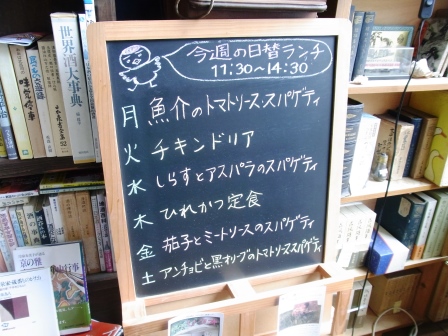 今週の日替ランチ
11:30〜14:30
月 魚介のトマトソース・スパゲティ
火 チキンドリア
水 しらすとアスパラのスパゲティ
木 ひれかつ定食
金 茄子とミートソースのスパゲティ
土 アンチョビと黒オリーブのトマトソーススパゲティ
世界酒大事典